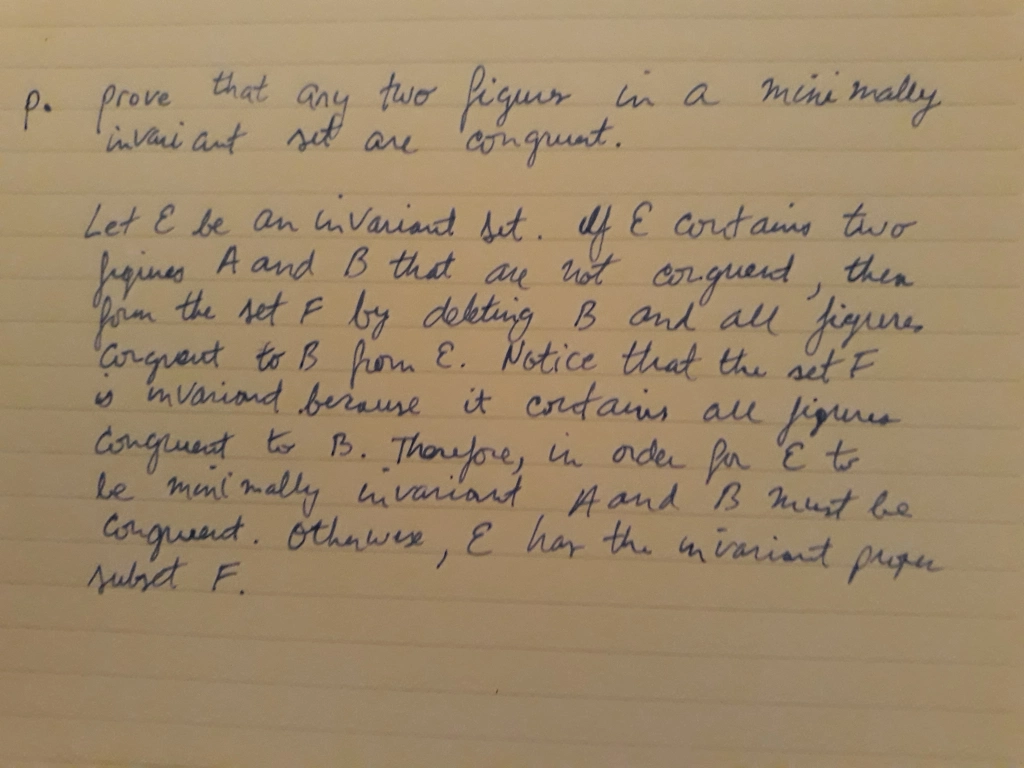 p. prove that any two figures in a minimally
invariant set are congruent.
Let E be an invariant set. If E contains two
figures A and B that are not congruent, then
form the set F by deleting B and all figures
congruent to B from E. Notice that the set F
is invariant because it contains all figures
congruent to B. Therefore, in order for E to
be minimally invariant, A and B must be
congruent. Otherwise, E has the invariant proper
subset F.